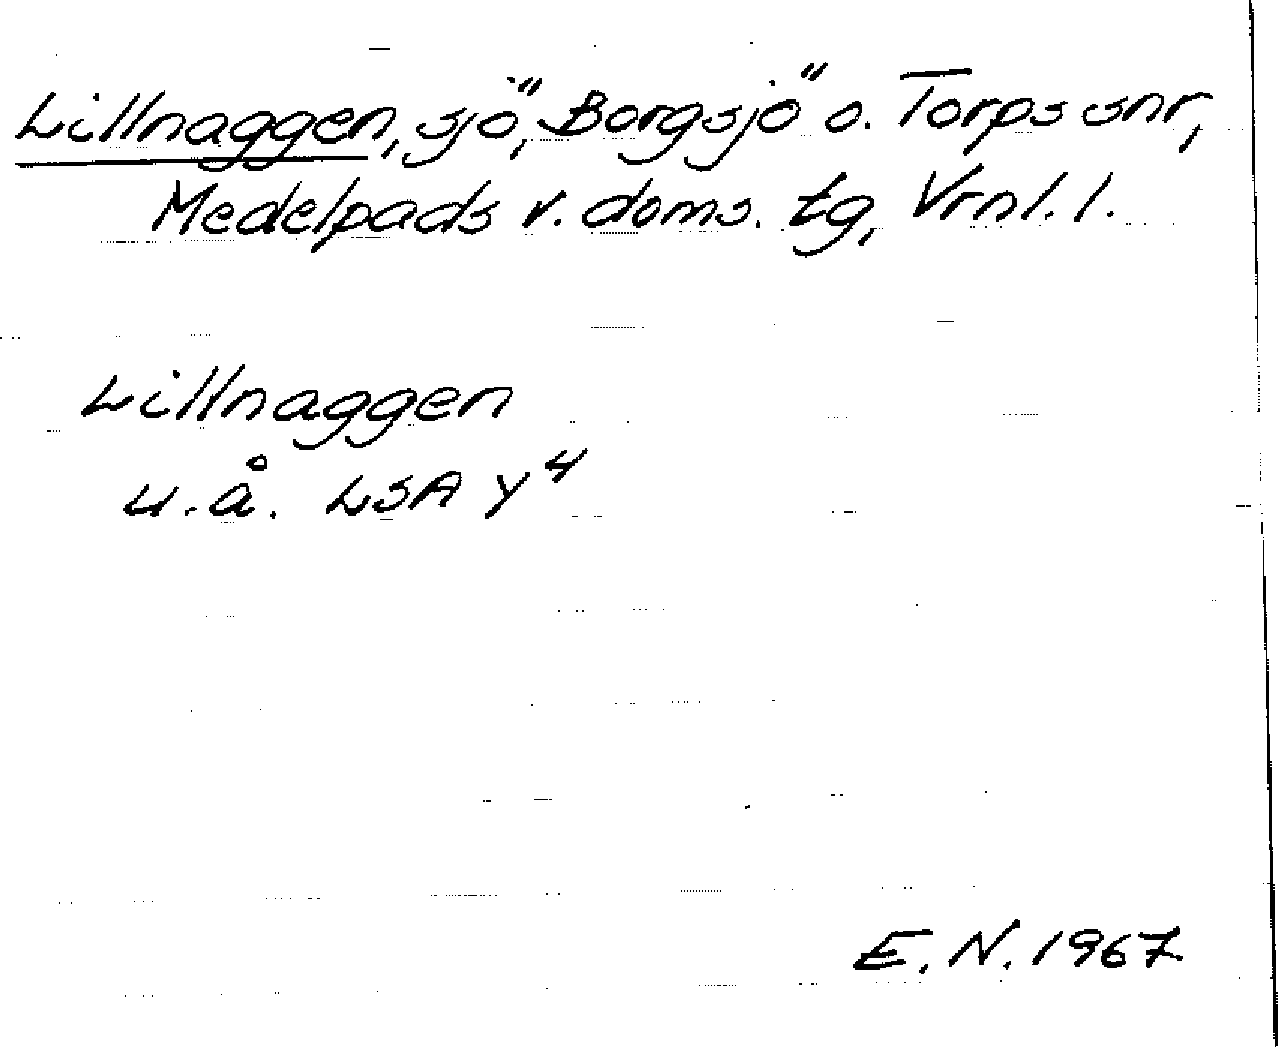 Lillnaggen, sjö, Borgsjö o. Torps snr,
Medelpads v. doms. tg, Vrnl. l.
Lillnaggen
u.å. LSA Y4
E. N. 1967